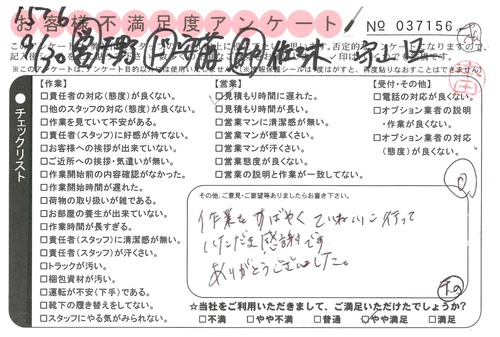 1576
お客様不満足度アンケート
№ 037156
9/30
守山区
このアンケートは
【作業】
□責任者の対応(態度)が良くない。
□他のスタッフの対応(態度)が良くない。
□作業を見ていて不安がある。
□責任者(スタッフ)に好感が持てない。
□お客様への挨拶が出来ていない。
□ご近所への挨拶・気遣いが無い。
□作業開始前の内容確認がなかった。
□作業開始時間が遅れた。
□荷物の取り扱いが雑である。
□お部屋の養生が出来ていない。
□作業時間が長すぎる。
□責任者(スタッフ)に清潔感が無い。
□責任者(スタッフ)が汗くさい。
□トラックが汚い。
□梱包資材が汚い。
□運転が不安(下手)である。
□靴下の履き替えをしてない。
□スタッフにやる気がみられない。
【営業】
□見積もり時間に遅れた。
□見積もり時間が長い。
□営業マンに清潔感が無い。
□営業マンが煙草くさい。
□営業マンが汗くさい。
□営業態度が良くない。
□営業の説明と作業が一致してない。
【受付・その他】
□電話の対応が良くない。
□オプション業者の説明
・作業が良くない。
□オプション業者の対応
(態度)が良くない。
チェックリスト
その他、ご意見・ご要望等ありましたらお書き下さい。
作業をすばやくていねいに行って
いただき感謝です
ありがとうございました。
☆当社をご利用いただきまして、ご満足いただけたでしょうか?
□不満 □やや不満 □普通 □やや満足 □満足